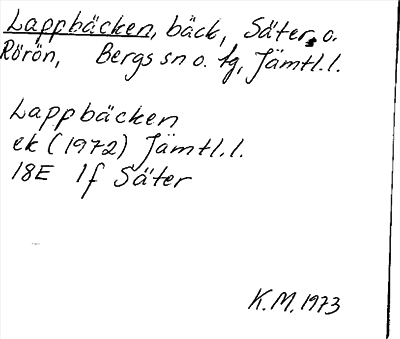 Lappbäcken, bäck, Säter o.
Rörön, Bergs sn o. tg, Jämtl.l.
Lappbäcken
ek (1972) Jämtl.l.
18E 1f Säter
K.M. 1973